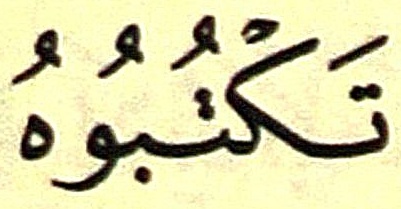 تَكْتُبُوُهُ